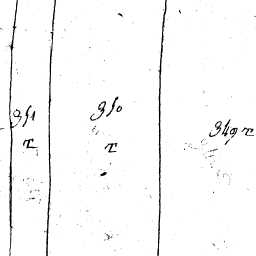 351
τ
350
τ
349 τ